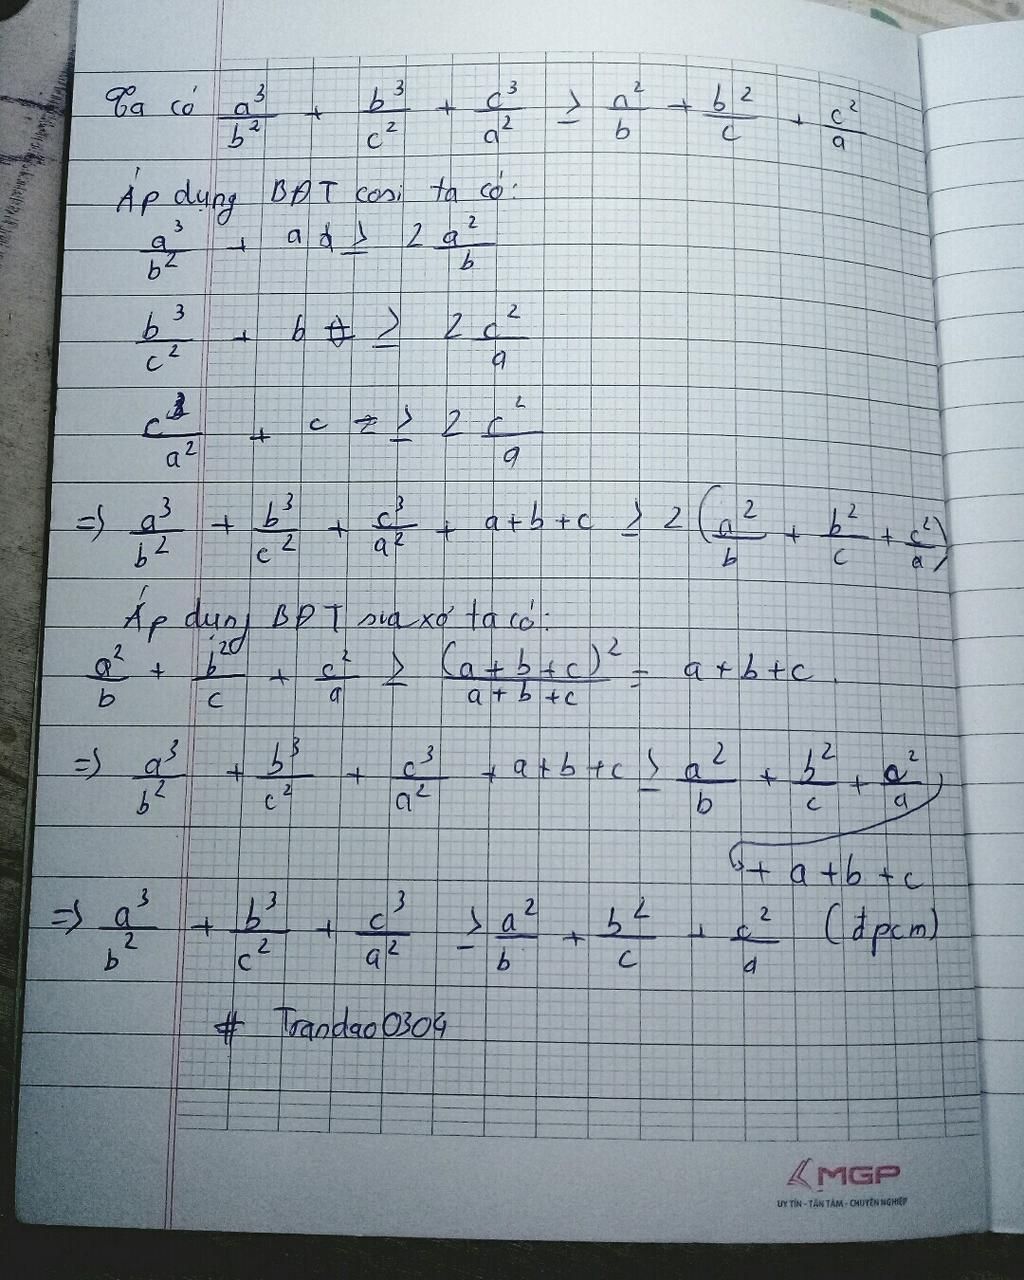 Ta có a³/b² + b³/c² + c³/a² ≥ a²/b + b²/c + c²/a
Áp dụng BĐT cosi ta có:
a³/b² + a ≥ 2 a²/b
b³/c² + b ≥ 2 c²/a
c³/a² + c ≥ 2 c²/a
=> a³/b² + b³/c² + c³/a² + a+b+c ≥ 2 (a²/b + b²/c + c²/a)
Áp dụng BĐT svaxơ ta có:
a²/b + b²/c + c²/a ≥ (a+b+c)²/a+b+c = a+b+c.
=> a³/b² + b³/c² + c³/a² + a+b+c ≥ a²/b + b²/c + a²/a
+ a+b+c
=> a³/b² + b³/c² + c³/a² ≥ a²/b + b²/c + c²/a (đpcm)
# Trandao0304
MGP
UY TÍN - TẬN TÂM - CHUYÊN NGHIỆP